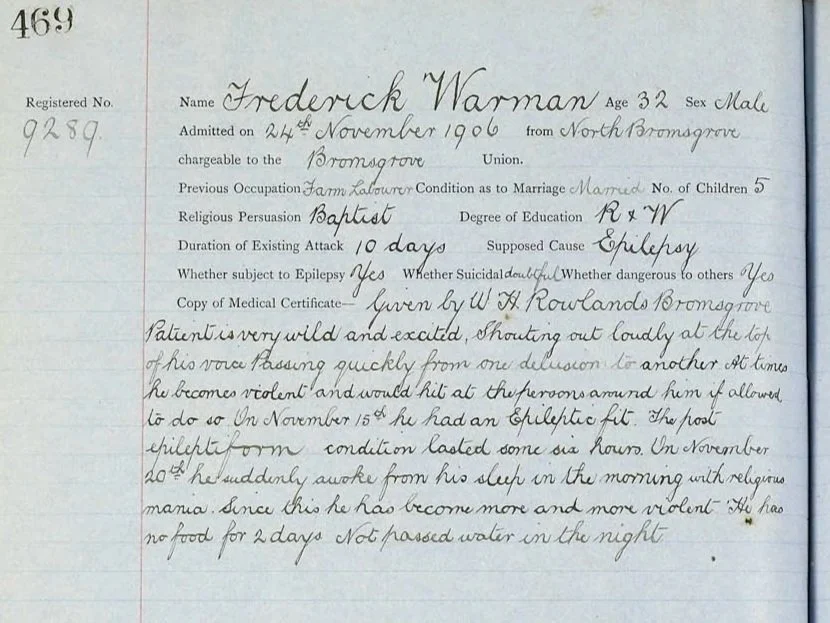 469
Registered No. Name Frederick Warman Age 32 Sex Male
9289. Admitted on 24th November 1906 from North Bromsgrove
chargeable to the Bromsgrove Union.
Previous Occupation Farm Labourer Condition as to Marriage Married No. of Children 5
Religious Persuasion Baptist Degree of Education R & W
Duration of Existing Attack 10 days Supposed Cause Epilepsy
Whether subject to Epilepsy Yes Whether Suicidal doubtful Whether dangerous to others Yes
Copy of Medical Certificate— Given by W H Rowlands Bromsgrove
Patient is very wild and excited, Shouting out loudly at the top
of his voice Passing quickly from one delusion to another. At times
he becomes violent and would hit at the persons around him if allowed
to do so. On November 15th he had an Epileptic fit. The post
epileptiform condition lasted some six hours. On November
20th he suddenly awoke from his sleep in the morning with religious
mania. Since this he has become more and more violent He has
no food for 2 days Not passed water in the night